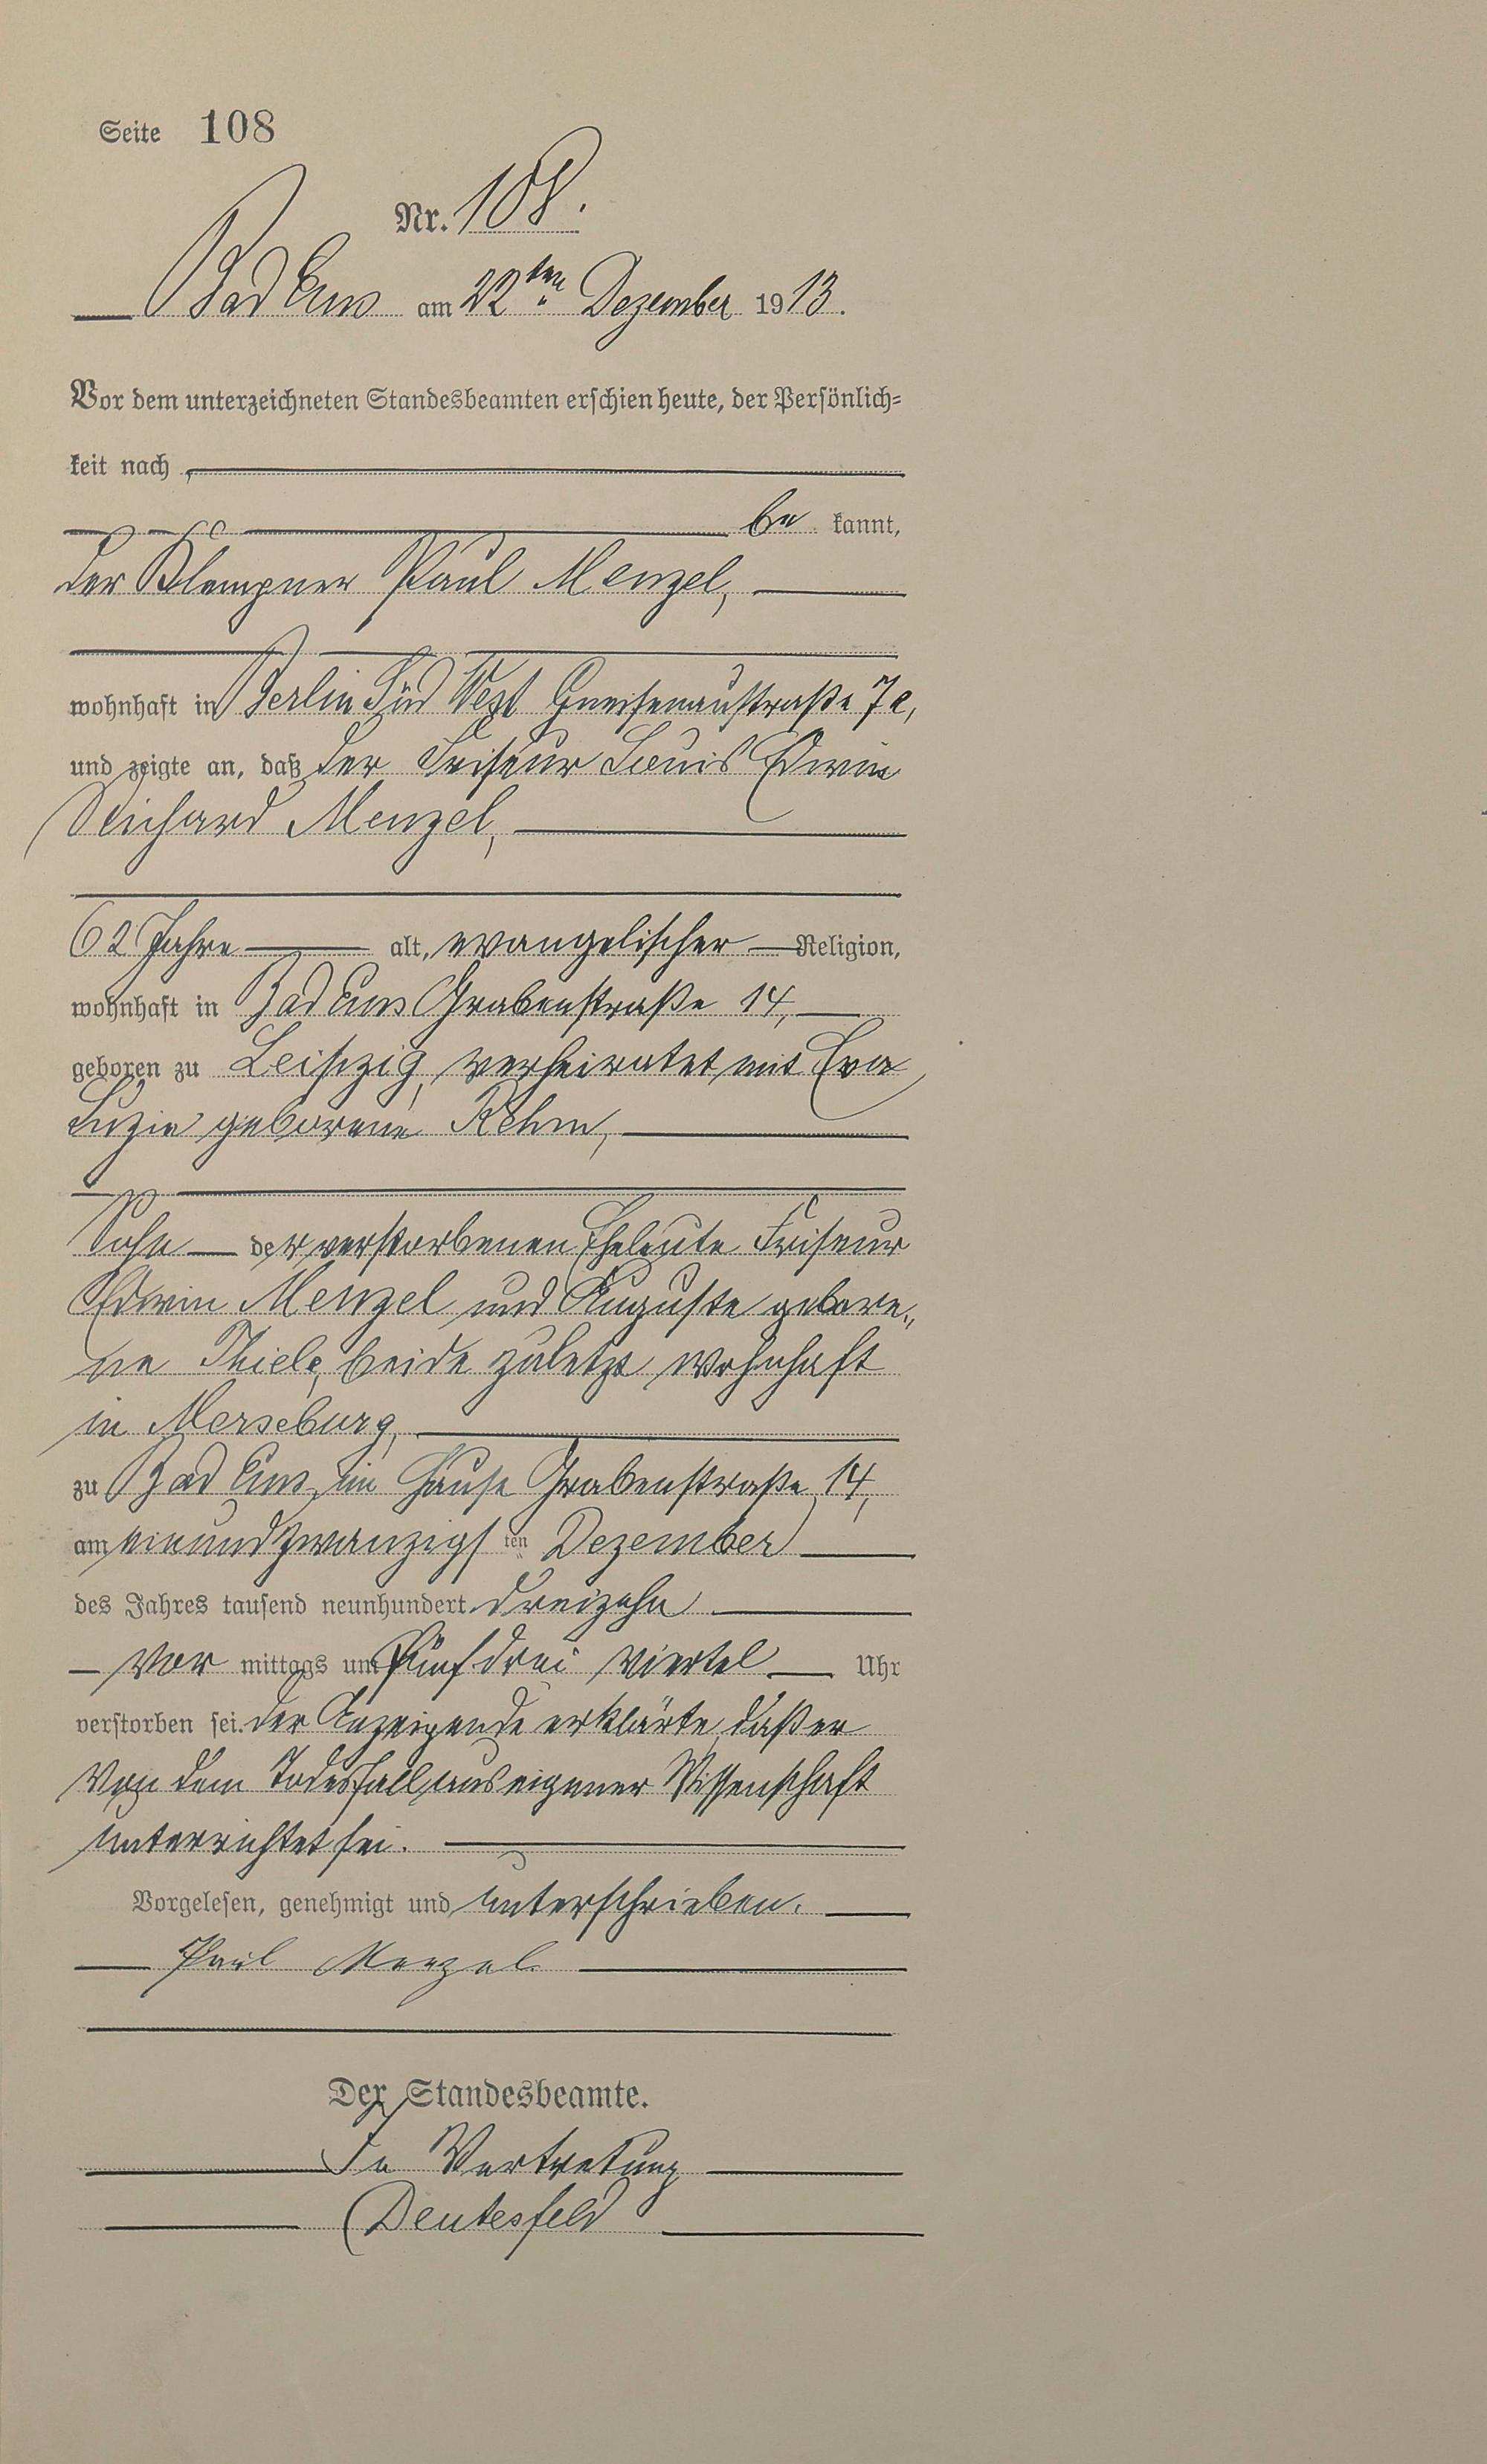 Seite 108
Nr. 108.
Bad Ems am 22ten Dezember 1913.
Vor dem unterzeichneten Standesbeamten erschien heute, der Persönlich=
keit nach
be kannt,
der Klempner Paul Menzel,
wohnhaft in Berlin Süd West Gneisenaustraße 7a,
und zeigte an, daß der Friseur Louis Edwin
Reinhard Menzel,
62 Jahre alt, evangelischer Religion,
wohnhaft in Bad Ems Grabenstraße 14,
geboren zu Leipzig, verheiratet mit Eva
Luzie geborene Rehm,
Sohn der verstorbenen Eheleute Friseur
Edwin Menzel und Auguste gebore„
ne Thiele, beide zuletzt wohnhaft
in Merseburg,
zu Bad Ems, im Hause Grabenstraße 14,
am einundzwanzigsten Dezember
des Jahres tausend neunhundert dreizehn
vor mittags um fünf drei viertel Uhr
verstorben sei. Der Anzeigende erklärte, daß er
von dem Todesfall aus eigener Wissenschaft
unterrichtet sei.
Vorgelesen, genehmigt und unterschrieben.
Paul Menzel
Der Standesbeamte.
In Vertretung
Deutesfeld